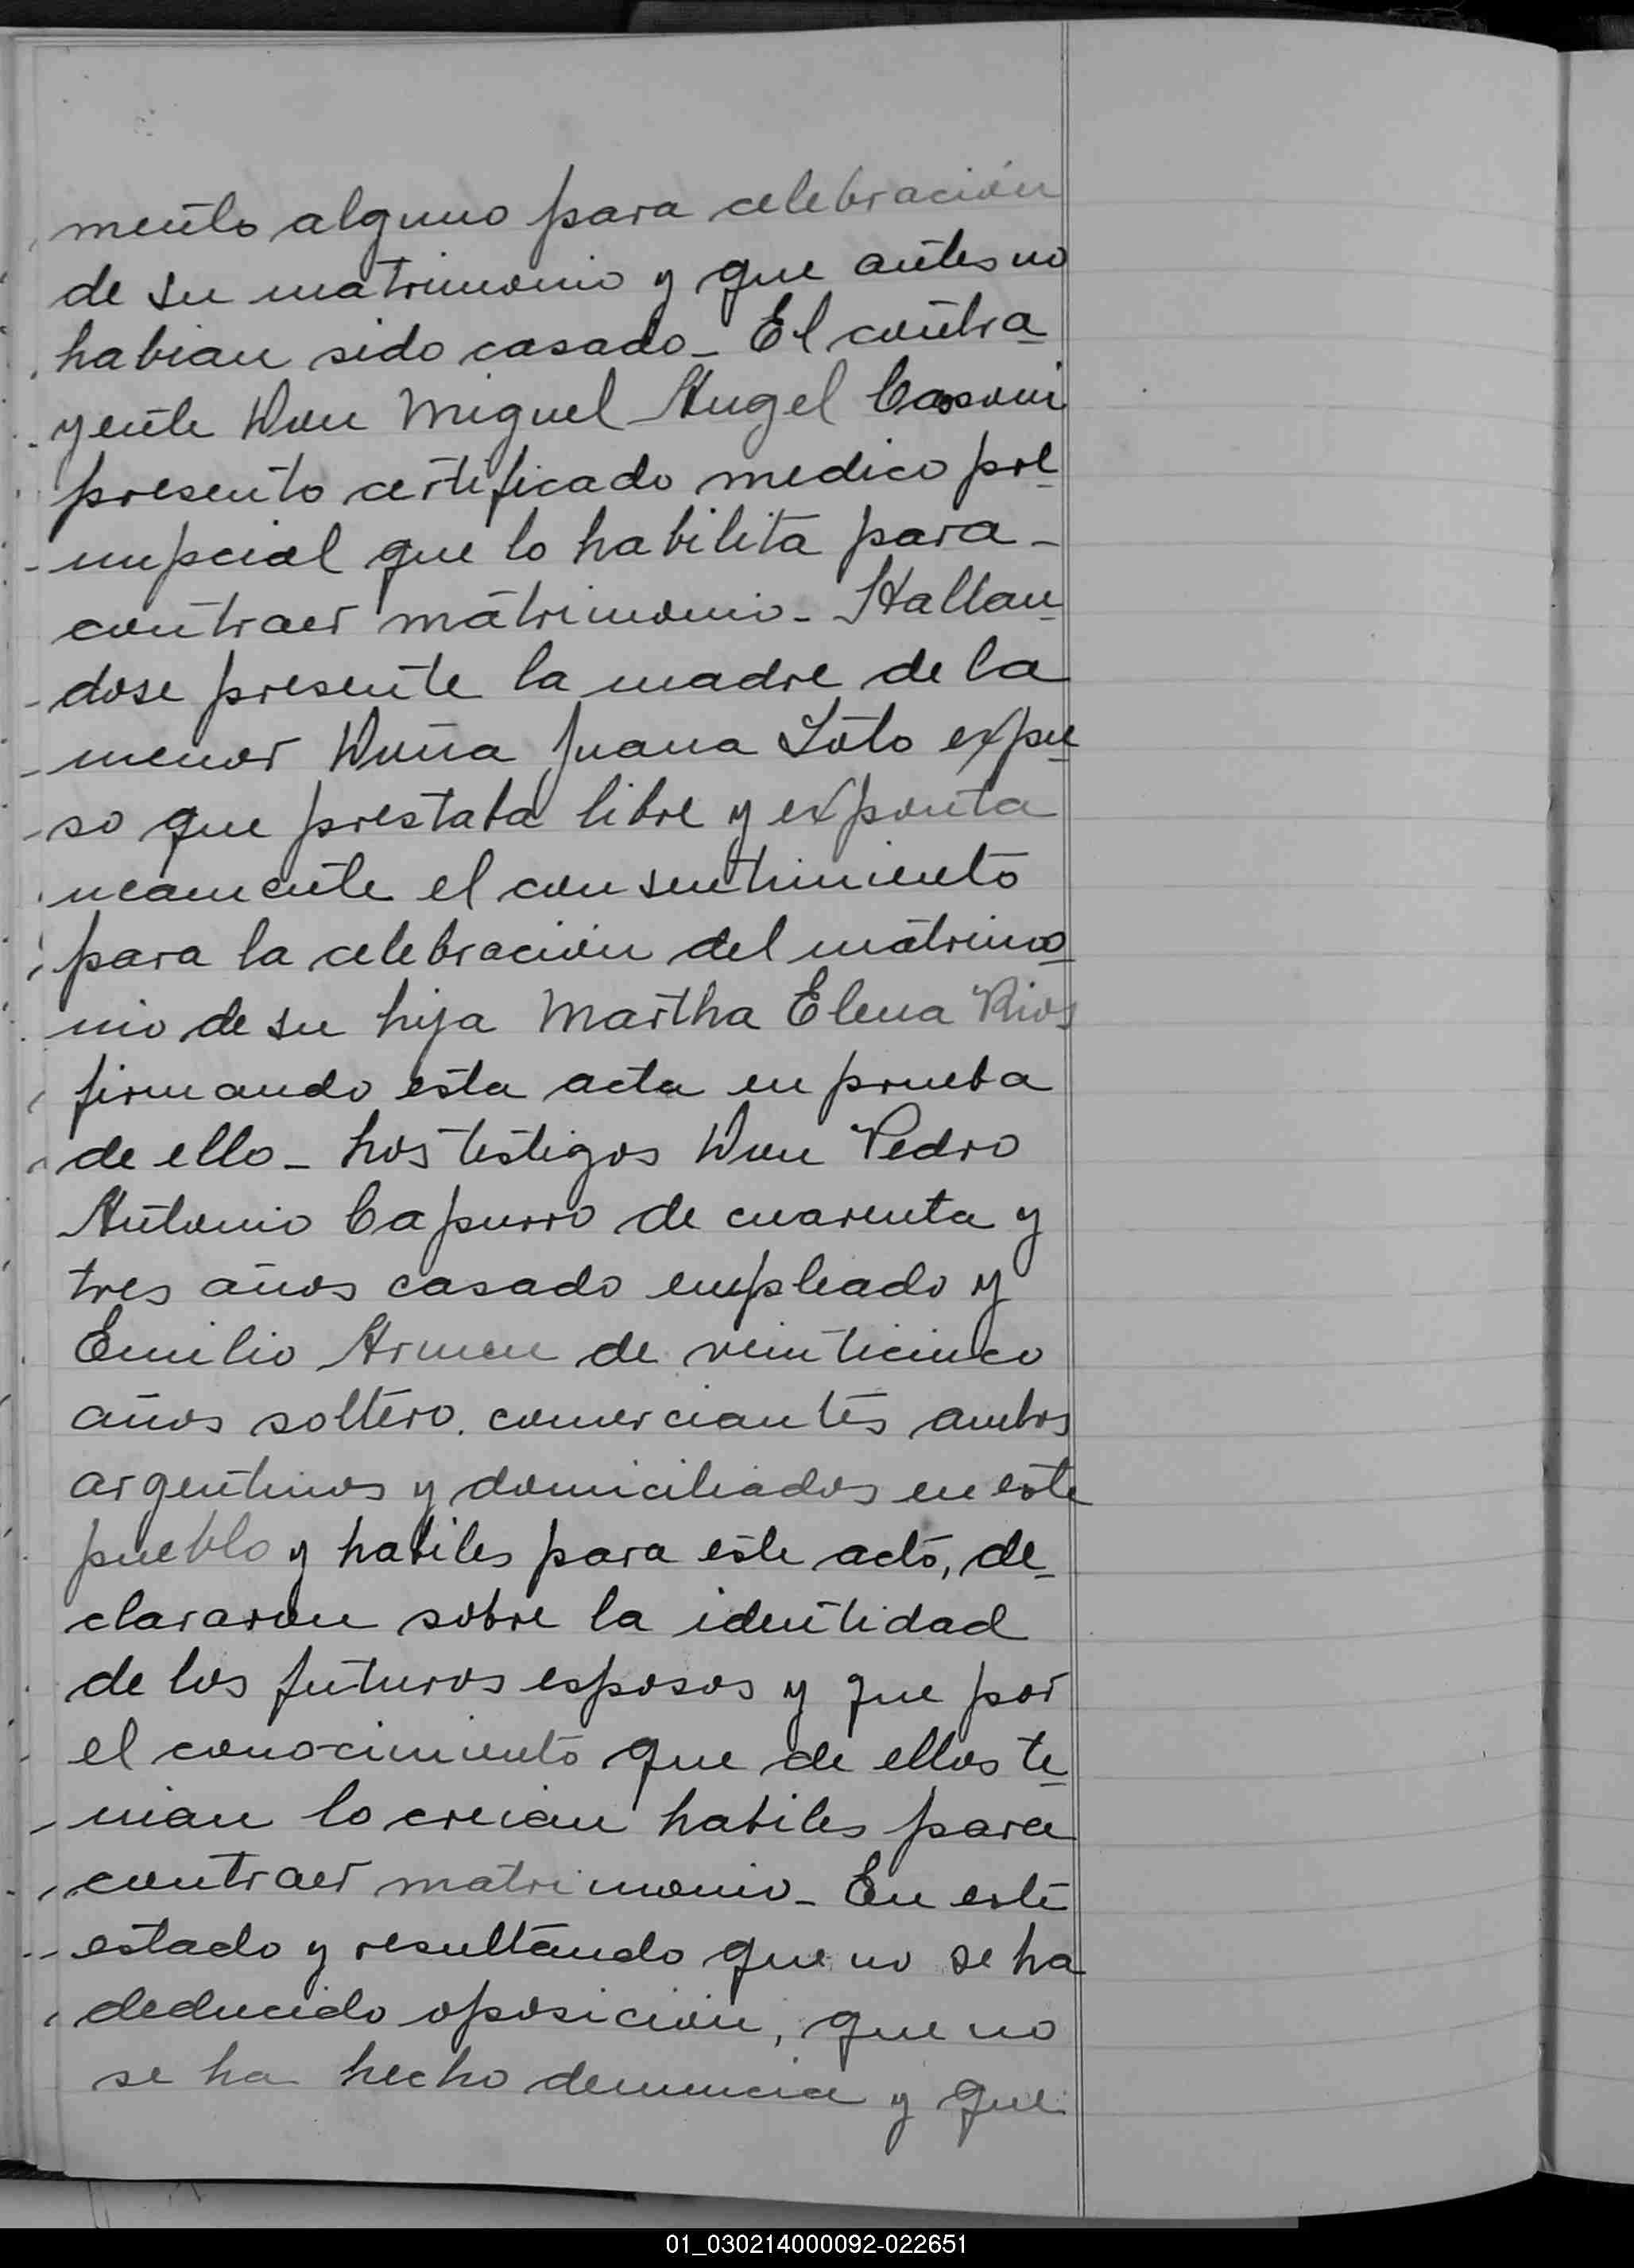 mento alguno para celebración
de su matrimonio y que antes no
habian sido casado_ El contra_
yente Don Miguel Angel Casoni
presento certificado medico pre_
nupcial que lo habilita para_
contraer matrimonio_ Hallan_
dose presente la madre de la
menor Doña Juana Soto expu_
so que prestaba libre y exponta
neamente el consentimiento
para la celebración del matrimo_
nio de su hija Martha Elena Rios
firmando esta acta en prueba
de ello_ Los testigos Don Pedro
Antonio Capurro de cuarenta y
tres años casado empleado y
Emilio Armen de veinticinco
años soltero. comerciantes ambos
argentinos y domiciliados en este
pueblo y habiles para este acto, de_
clararon sobre la identidad
de los futuros esposos y que por
el conocimiento que de ellos te_
nian lo creian habiles para
contraer matrimonio_ En este
estado y resultando que no se ha
deducido oposición, que no
se ha hecho denuncia y que
01_030214000092-022651